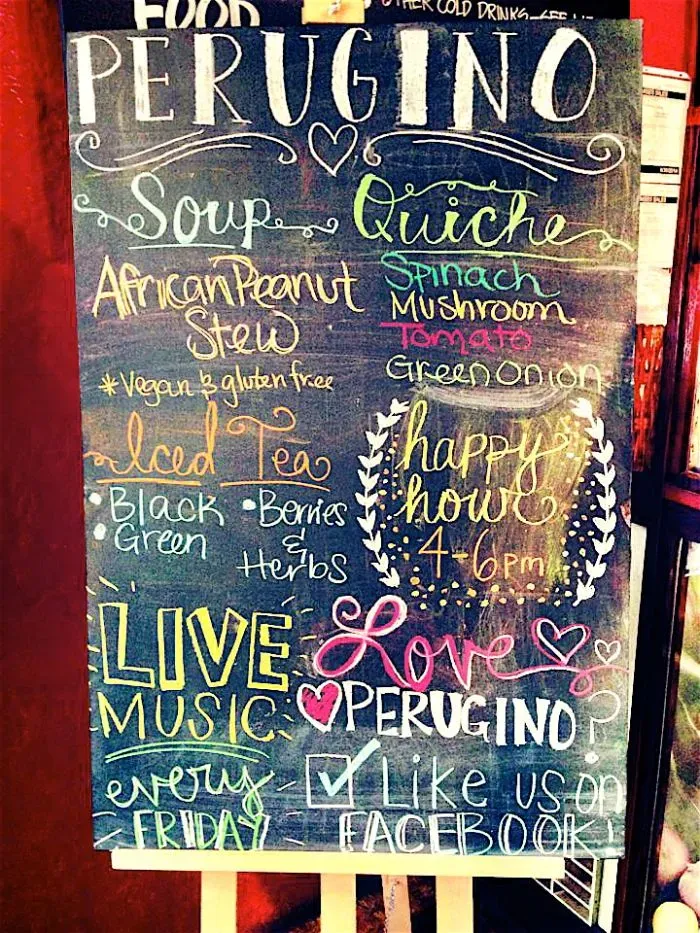 FOOD
OTHER COLD DRINKS
PERUGINO
Soup
African Peanut
Stew
*Vegan & gluten free
Quiche
Spinach
Mushroom
Tomato
Green Onion
Iced Tea
• Black
• Green
• Berries
&
Herbs
happy
hour
4-6pm
LIVE
MUSIC
every
FRIDAY
Love
PERUGINO?
Like us on
FACEBOOK!